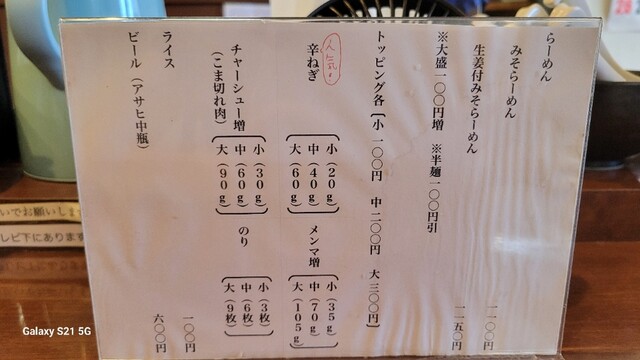 らーめん
みそらーめん 一一〇〇円
生姜付みそらーめん 一一五〇円
※大盛一〇〇円増 ※半麺一〇〇円引
トッピング各〔小 一〇〇円 中 二〇〇円 大 三〇〇円〕
人気!
辛ねぎ
小（20g）
中（40g）
大（60g）
メンマ増
小（35g）
中（70g）
大（105g）
チャーシュー増
（こま切れ肉）
小（30g）
中（60g）
大（90g）
のり
小（3枚）
中（6枚）
大（9枚）
ライス 一〇〇円
ビール（アサヒ中瓶） 六〇〇円
いでお願いします
レビ下にあります
Galaxy S21 5G